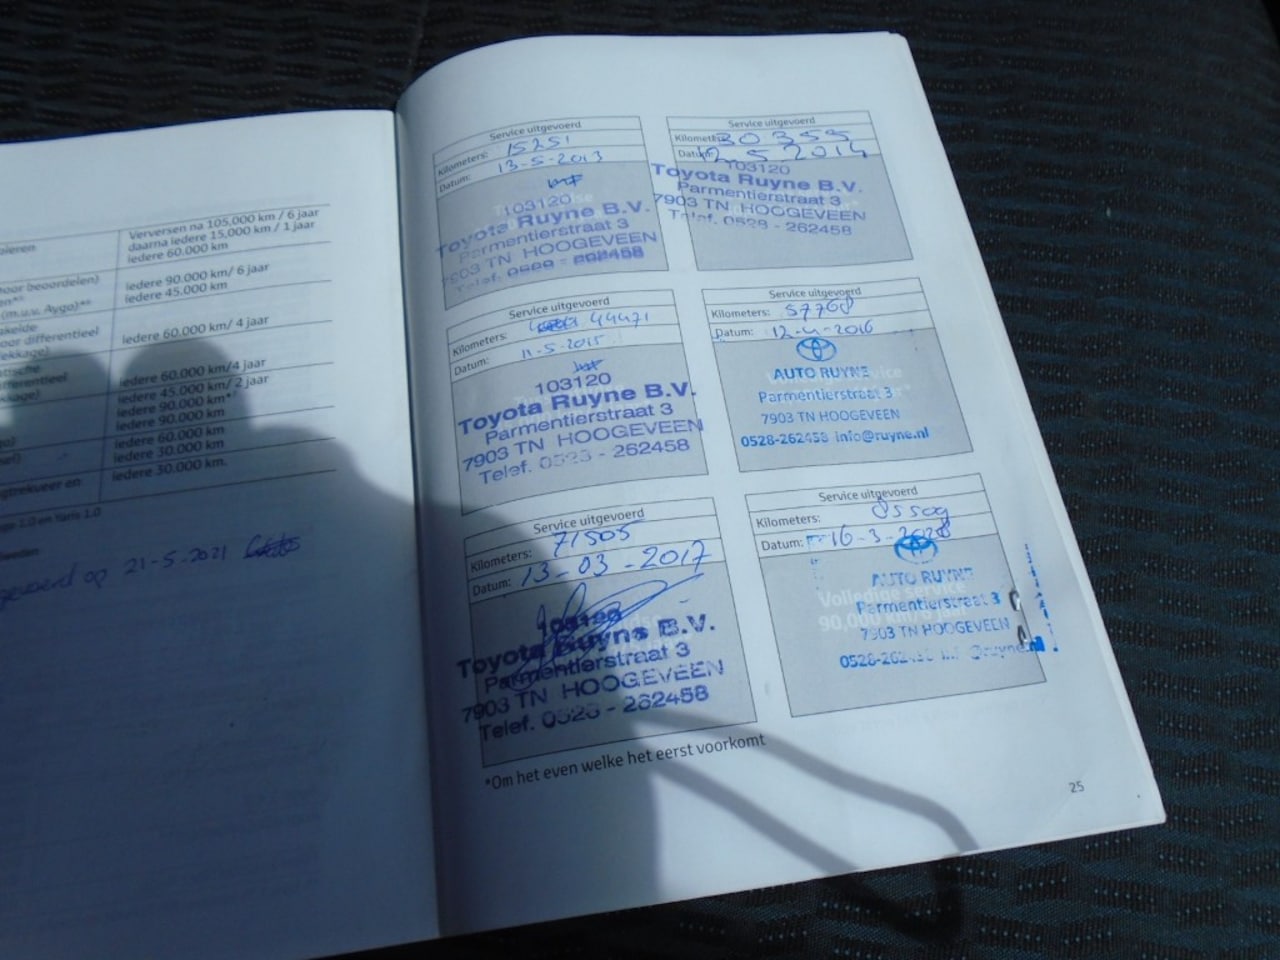 Verversen na 105.000 km / 6 jaar
daarna iedere 15.000 km / 1 jaar
iedere 60.000 km
oor beoordelen)
iedere 90.000 km/ 6 jaar
(m.u.v. Aygo)**
iedere 45.000 km
oor differentieel
iedere 60.000 km/ 4 jaar
iedere 60.000 km/4 jaar
iedere 45.000 km/ 2 jaar
iedere 90.000 km*
iedere 90.000 km
iedere 60.000 km
iedere 30.000 km
iedere 30.000 km.
1.0 en Yaris 1.0
op 21-5-2021
Service uitgevoerd
Kilometers: 15251
Datum: 13-5-2013
103120
Toyota Ruyne B.V.
Parmentierstraat 3
7903 TN HOOGEVEEN
Service uitgevoerd
Kilometers: 30355
Datum: 12-5-2014
103120
Toyota Ruyne B.V.
Parmentierstraat 3
7903 TN HOOGEVEEN
Telef. 0528 - 262458
Service uitgevoerd
Kilometers: 44471
Datum: 11-5-2015
103120
Toyota Ruyne B.V.
Parmentierstraat 3
7903 TN HOOGEVEEN
Telef. 0528 - 262458
Service uitgevoerd
Kilometers: 57768
Datum: 12-4-2016
AUTO RUYNE
Parmentierstraat 3
7903 TN HOOGEVEEN
0528-262458 info@ruyne.nl
Service uitgevoerd
Kilometers: 71505
Datum: 13-03-2017
Toyota Ruyne B.V.
Parmentierstraat 3
7903 TN HOOGEVEEN
Telef. 0528 - 262458
Service uitgevoerd
Kilometers: 85509
Datum: 16-3-2018
AUTO RUYNE
Volledige service
Parmentierstraat 3
90.000 km/
7903 TN HOOGEVEEN
*Om het even welke het eerst voorkomt
25